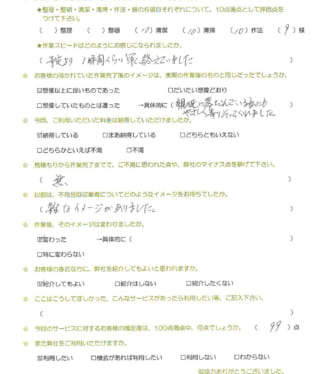 ★整理・整頓・清潔・清掃・作法・躾の5項目それぞれについて、10点満点として評価点を
つけて下さい。
( )整理 ( )整頓 (10)清潔 (10)清掃 (10)作法 (9)躾
★作業スピードはどのように感じになられましたか。
( 1時間くらい早く終えていました )
☆ お客様の描かれていた作業完了後のイメージは、実際の作業後のものと同じだったでしょうか。
☑想像以上に良いものであった □だいたい想像どおり
□想像していたものとは違った →具体的に(
☆ 今回、ご用いただいた料金は納得していただけましたか。
☑納得している □まあ納得している □どちらともいえない
□どちらかといえば不満 □不満
☆ 見積もりから作業完了までで、ご不満に思われた点や、弊社のマイナス点を挙げて下さい。
( 無、 )
☆ 以前は、不用品回収業者についてどのようなイメージをお持ちでしたか。
( 雑なイメージがありました。 )
☆ 作業後、そのイメージは変わりましたか。
☑変わった →具体的に( )
□特に変わらない
☆ お客様の身近な方に、弊社を紹介してもよいと思われますか。
☑紹介してもよい □紹介はしない □紹介したくない
☆ ここはこうしてほしかった。こんなサービスがあったら利用したい等、ご記入下さい。
( )
☆ 今回のサービスに対するお客様の満足度は、100点満点中、何点でしょうか。 ( 99 )点
☆ また弊社をご利用いただけますか。
☑利用したい □機会があれば利用したい □利用しない □わからない
ご協力ありがとうございました。